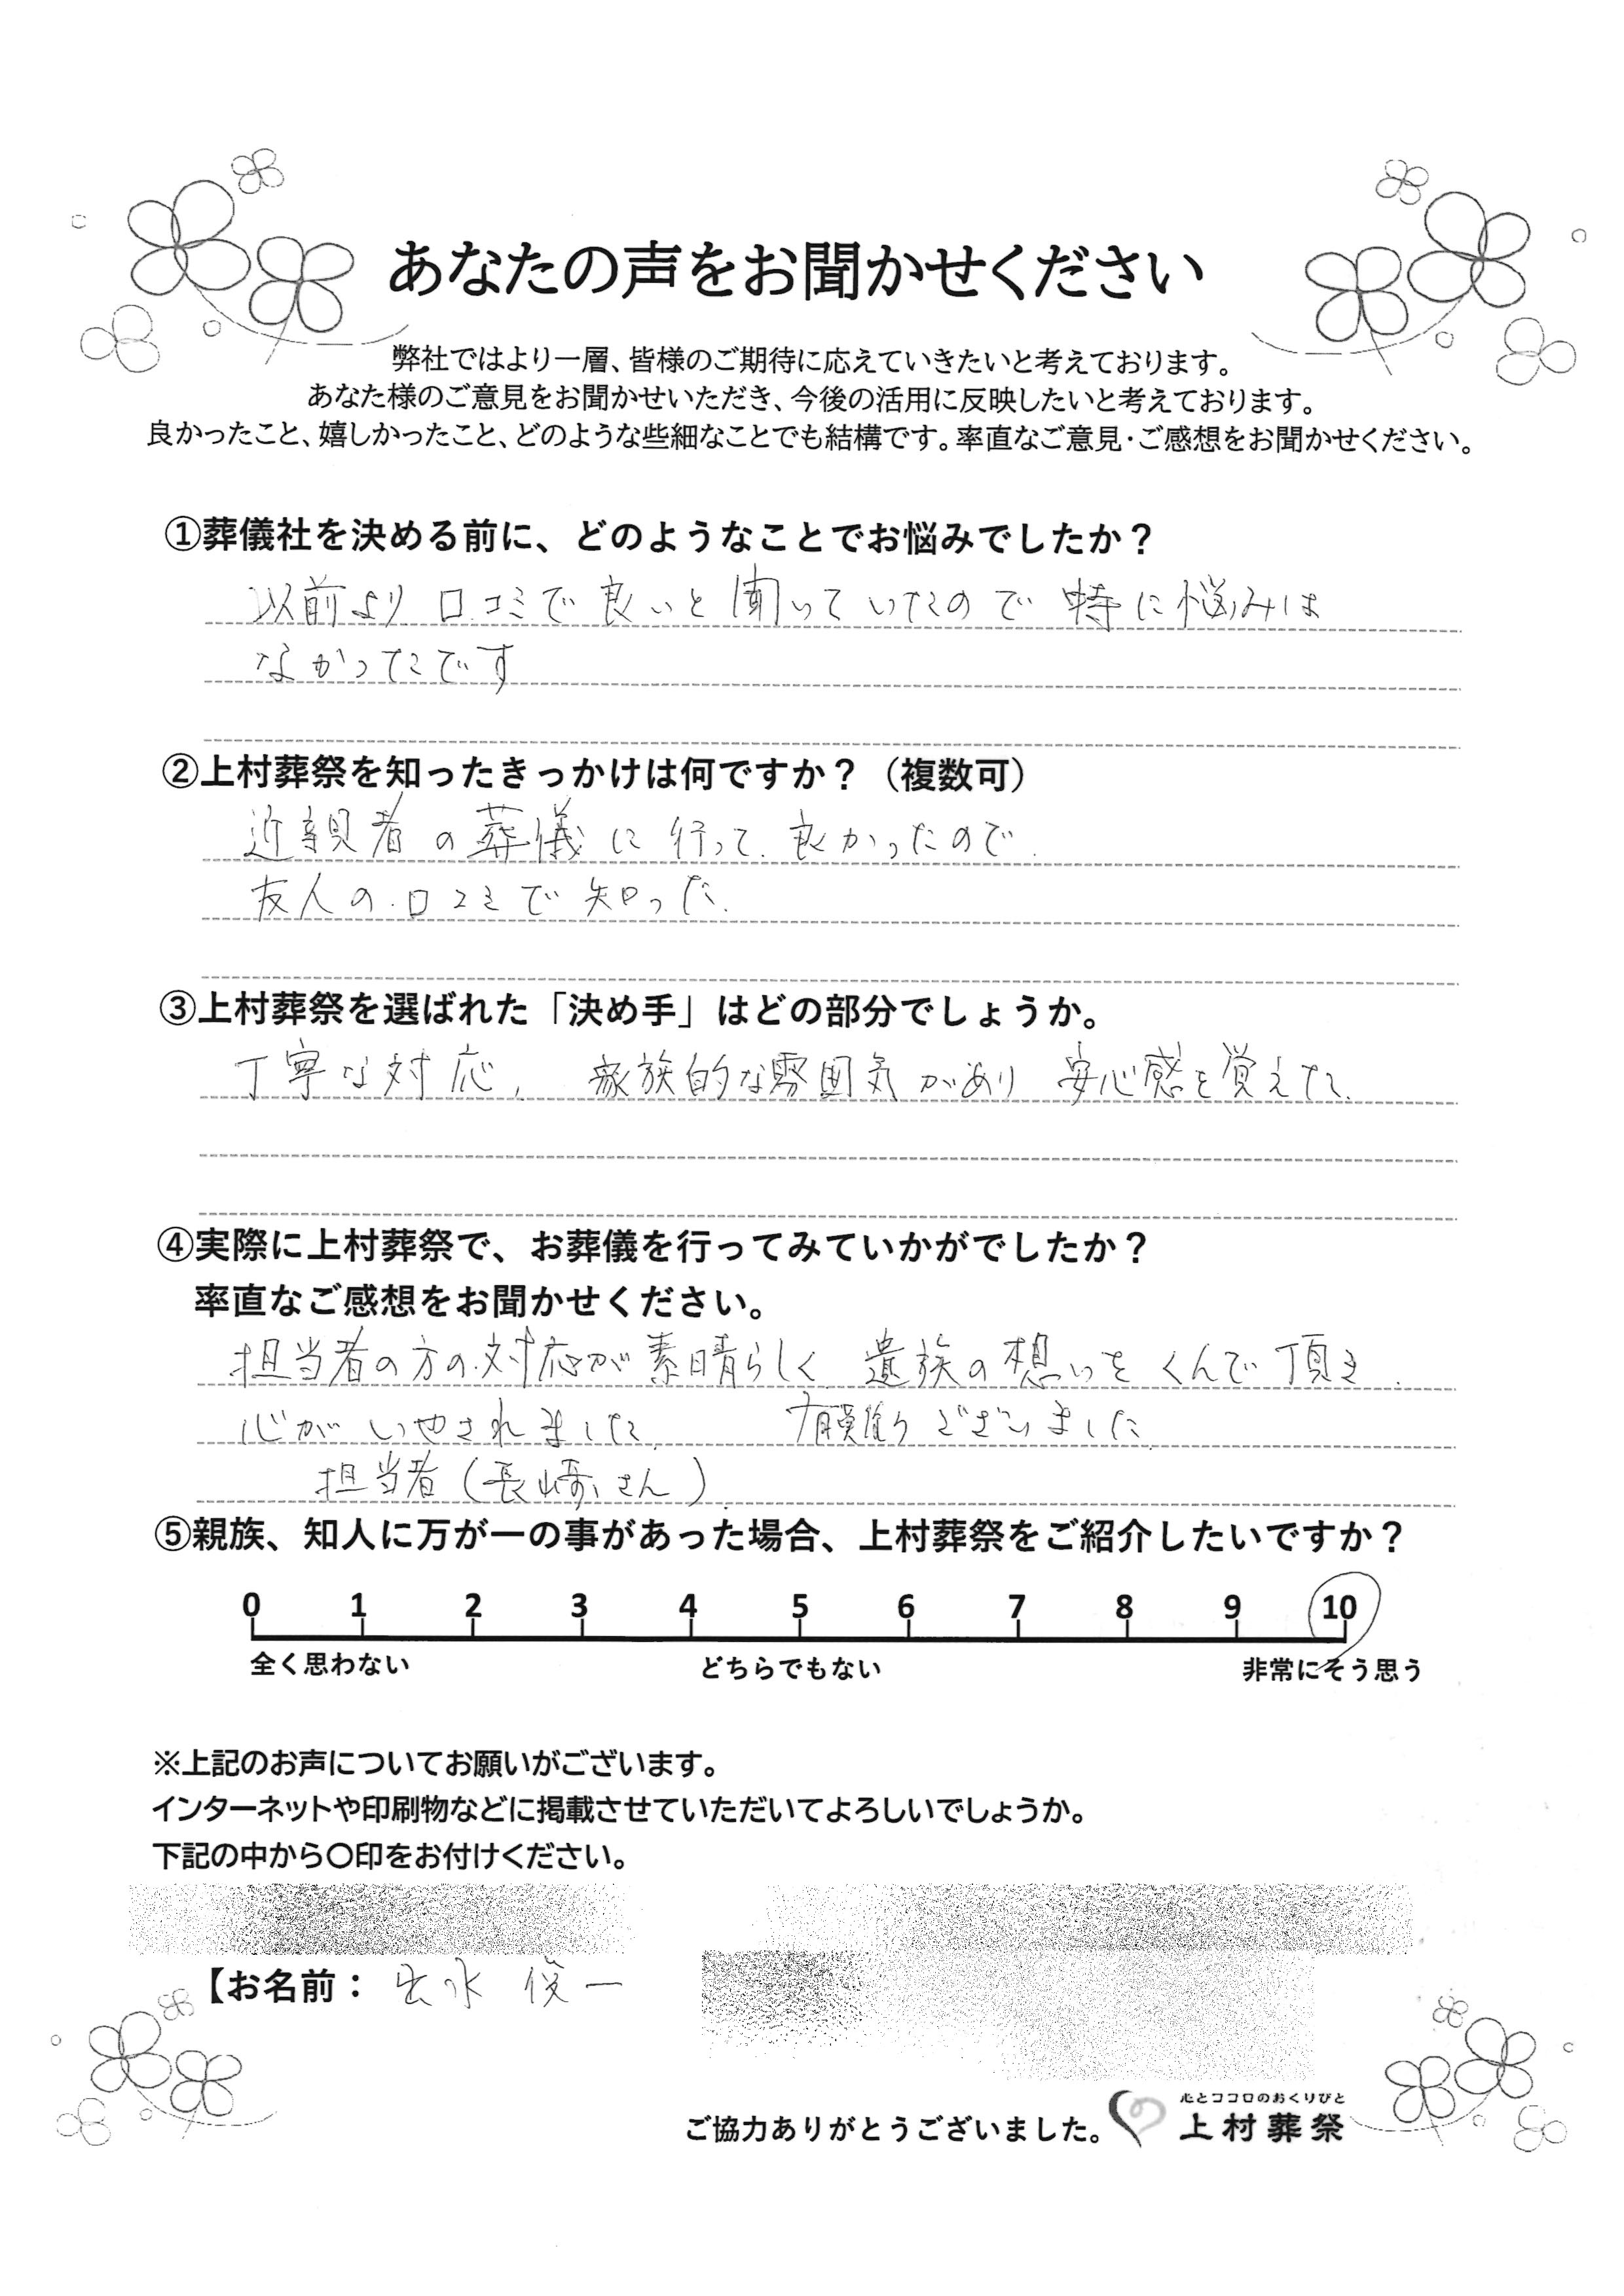 あなたの声をお聞かせください
弊社ではより一層、皆様のご期待に応えていきたいと考えております。
あなた様のご意見をお聞かせいただき、今後の活用に反映したいと考えております。
良かったこと、嬉しかったこと、どのような些細なことでも結構です。率直なご意見・ご感想をお聞かせください。
①葬儀社を決める前に、どのようなことでお悩みでしたか？
以前より口コミで良いと聞いていたので特に悩みは
なかったです
②上村葬祭を知ったきっかけは何ですか？（複数可）
近親者の葬儀に行って良かったので
友人の口コミで知った
③上村葬祭を選ばれた「決め手」はどの部分でしょうか。
丁寧な対応、家族的な雰囲気があり安心感を覚えた
④実際に上村葬祭で、お葬儀を行ってみていかがでしたか？
率直なご感想をお聞かせください。
担当者の方の対応が素晴らしく遺族の想いをくんで頂き
心がいやされました 有難うございました
担当者（長崎さん）
⑤親族、知人に万が一の事があった場合、上村葬祭をご紹介したいですか？
0 1 2 3 4 5 6 7 8 9 10
全く思わない どちらでもない 非常にそう思う
※上記のお声についてお願いがございます。
インターネットや印刷物などに掲載させていただいてよろしいでしょうか。
下記の中から〇印をお付けください。
【お名前： 出水 俊一
心とココロのおくりびと
ご協力ありがとうございました。 上村葬祭